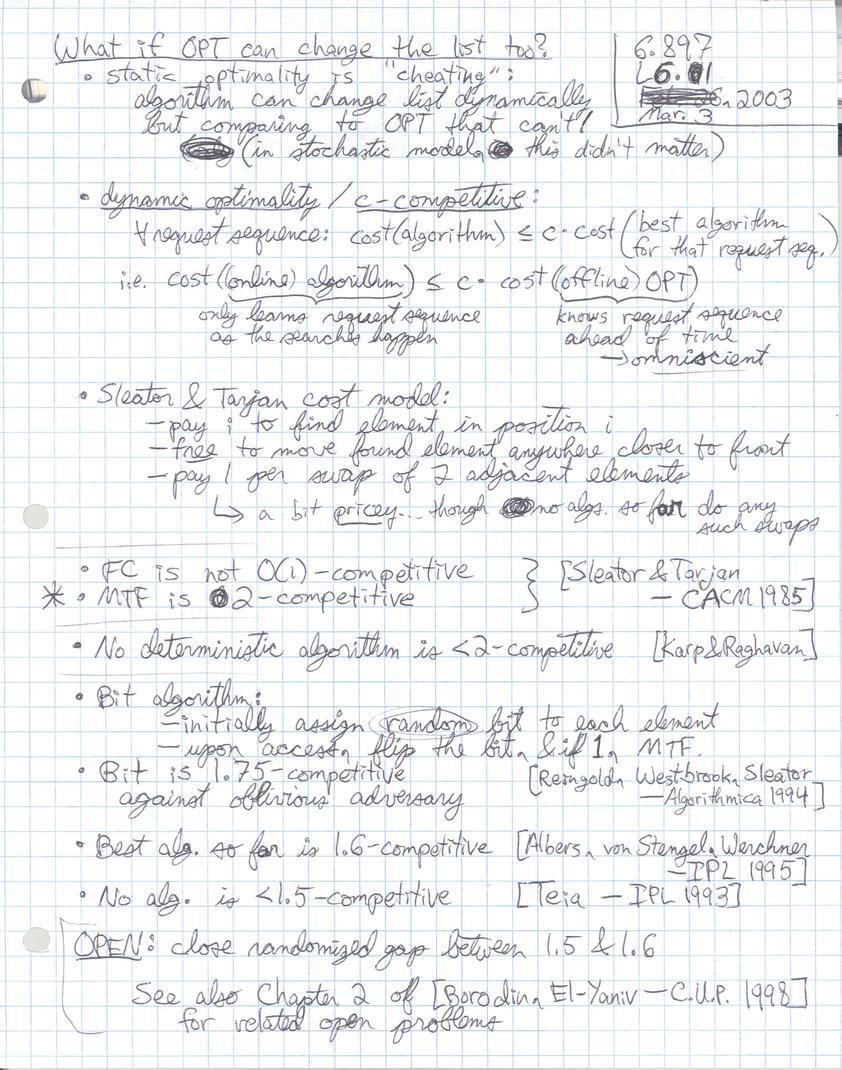 What if OPT can change the list too?
6.897
L6.1
2003
Mar. 3
• static optimality is "cheating":
algorithm can change list dynamically
but comparing to OPT that can't!
(in stochastic model, this didn't matter)
• dynamic optimality / c-competitive:
∀ request sequence: cost(algorithm) ≤ c · cost(best algorithm
for that request seq.)
i.e. cost((online) algorithm) ≤ c · cost((offline) OPT)
only learns request sequence
as the searches happen
knows request sequence
ahead of time
→ omniscient
• Sleator & Tarjan cost model:
— pay i to find element in position i
— free to move found element anywhere closer to front
— pay 1 per swap of 2 adjacent elements
↳ a bit pricey... though no algs. so far do any
such swaps
• FC is not O(1)-competitive
* • MTF is 2-competitive
[Sleator & Tarjan
— CACM 1985]
• No deterministic algorithm is <2-competitive [Karp & Raghavan]
• Bit algorithm:
— initially assign random bit to each element
— upon access, flip the bit, & if 1, MTF.
• Bit is 1.75-competitive
against oblivious adversary
[Reingold, Westbrook, Sleator
— Algorithmica 1994]
• Best alg. so far is 1.6-competitive [Albers, von Stengel, Werchner
— IPL 1995]
• No alg. is <1.5-competitive [Teia — IPL 1993]
OPEN: close randomized gap between 1.5 & 1.6
See also Chapter 2 of [Borodin, El-Yaniv — C.U.P. 1998]
for related open problems